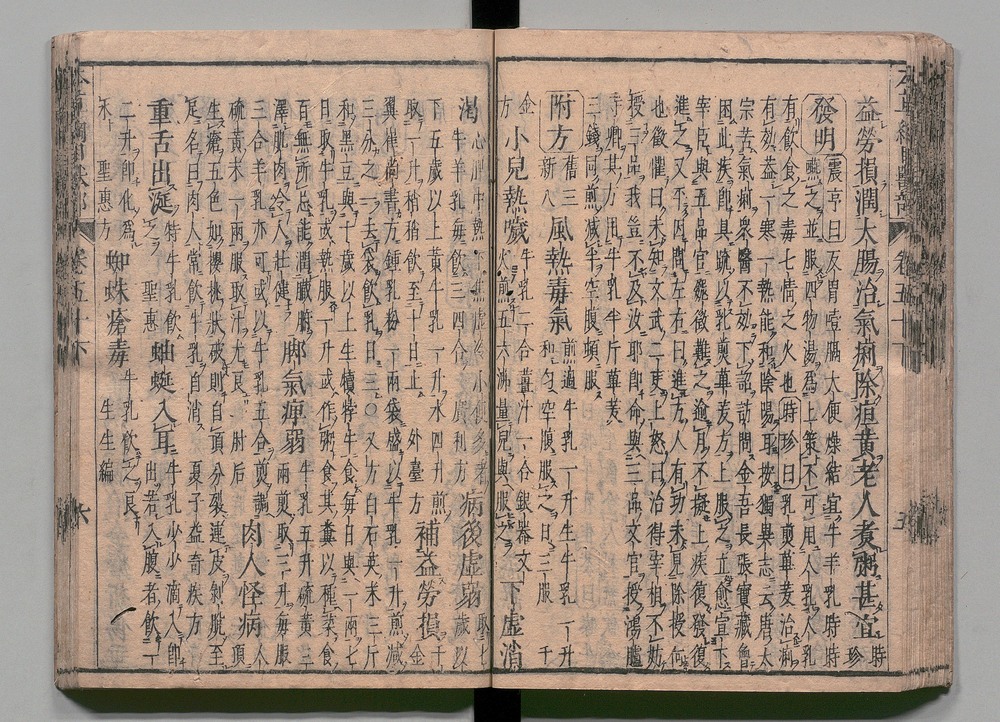 益勞損潤大腸治氣痢除疸黃老人煮粥甚宜
時珍
發明
震亨曰反胃噎膈大便燥結宜牛羊乳時時
嚥之兼服四物湯為上策不可用人乳人乳
有飲食之毒七情之火也時珍曰乳煎蓽茇治痢
有効益一寒一熱能和陰陽耳按獨異志云唐太
宗苦氣痢衆醫不効下詔訪問金吾長張寶藏曽
困此疾卽具疏以乳煎蓽茇方上服之立愈宣下
宰臣與五品官魏徵難之逾月不擬上疾復發復
進之又平因問左右曰進方人有功未見除授何
也徵懼曰未知文武二吏上怒曰治得宰相不妨
授三品我豈不及汝耶卽命與三品文官授鴻臚
寺卿其方用牛乳半斤蓽茇
三錢同煎減半空腹頓服
附方
舊三
新八
風熱毒氣
煎過牛乳一升生牛乳一升
和勻空腹服之日三服
千
金
方
小兒熱噦
牛乳二合薑汁一合銀器文
火煎五六沸量兒與服之
下虛消
渴
心脾中熱下焦虛冷小便多者
牛羊乳每飲三四合嚴利方
病後虛弱
聖
歲以
下五歲以上黃牛乳一升水四升煎
取一升稍稍飲至十日止
外臺方
補益勞損
千
金
翼崔尚書方鍾乳粉一兩袋盛以牛乳一升煎減
三分之一去袋飲乳日三〇又方白石英末三斤
和黑豆與十歲以上生犢牸牛食每日與一兩七
日取牛乳或熱服一升或作粥食其糞以種菜食
百無所忌能潤臟腑
澤肌肉令人壯健
脚氣痹弱
牛乳五升硫黃
三兩煎取三升每服
三合羊乳亦可或以牛乳五合煎調
硫黃末一兩服取汁尤良肘后
肉人怪病
人頂
生瘡五色如櫻桃狀破則自頂分裂連皮剝脫至
足名曰肉人常飲牛乳自消
夏子益奇疾方
重舌出涎
特牛乳飲
之聖惠
蚰蜒入耳
牛乳少少滴入卽
出若入腹者飲一
二升卽化為
水聖惠方
蜘蛛瘡毒
牛乳飲之良
生生編
卷五十下
五
卷五十下
六